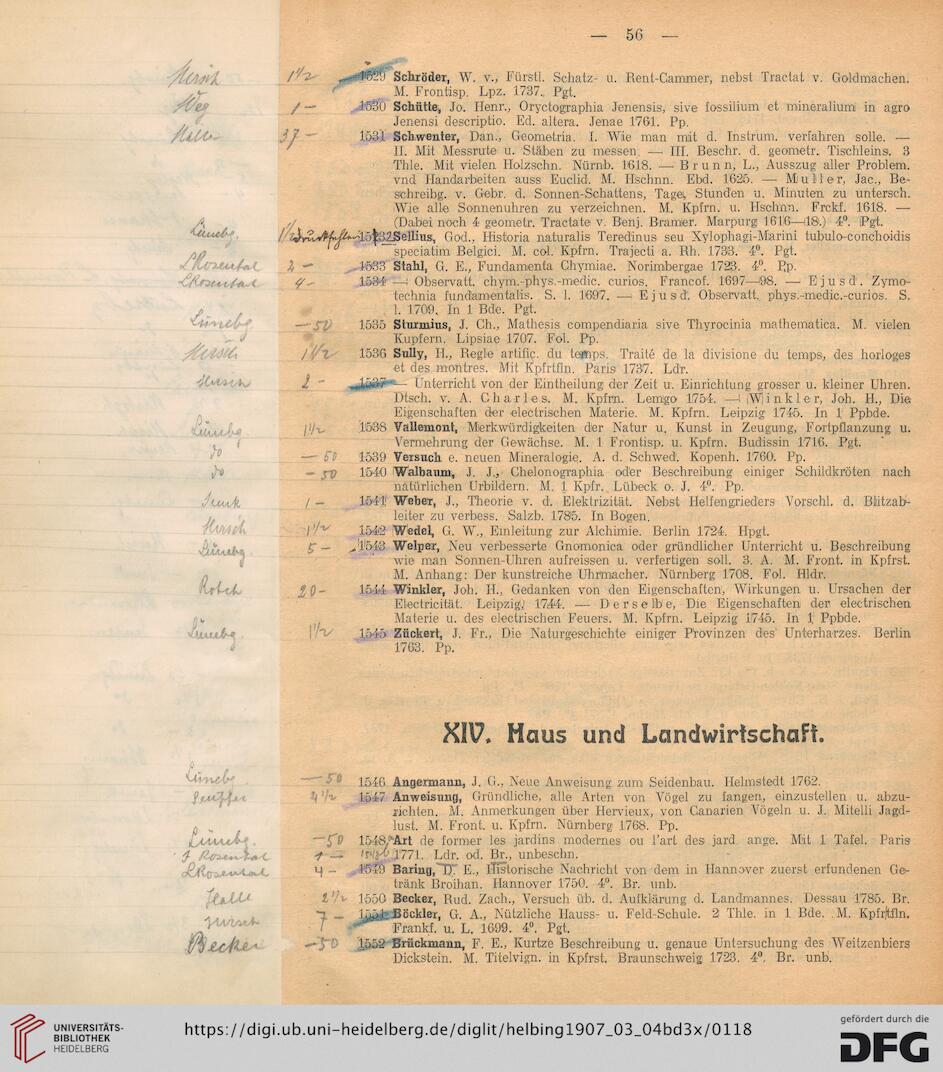 — 56 —
Hirsch 1 1/2 1529 Schröder, W. v., Fürstl. Schatz- u. Rent-Cammer, nebst Tractat v. Goldmachen.
M. Frontisp. Lpz. 1737. Pgt.
Weg 1 — 1530 Schütte, Jo. Henr., Oryctographia Jenensis, sive fossilium et mineralium in agro
Jenensi descriptio. Ed. altera. Jenae 1761. Pp.
Halle 37 — 1531 Schwenter, Dan., Geometria. I. Wie man mit d. Instrum. verfahren solle. —
II. Mit Messrute u. Stäben zu messen. — III. Beschr. d. geometr. Tischleins. 3
Thle. Mit vielen Holzschn. Nürnb. 1618. — Brunn, L., Ausszug aller Problem.
vnd Handarbeiten auss Euclid. M. Hschnn. Ebd. 1625. — Muller, Jac., Be-
schreibg. v. Gebr. d. Sonnen-Schattens, Tage, Stunden u. Minuten zu untersch.
Wie alle Sonnenuhren zu verzeichnen. M. Kpfrn. u. Hschnn. Frckf. 1618. —
(Dabei noch 4 geometr. Tractate v. Benj. Bramer. Marpurg 1616—18.) 4⁰. Pgt.
Lünebg. 1532 Sellius, God., Historia naturalis Teredinus seu Xylophagi-Marini tubulo-conchoidis
speciatim Belgici. M. col. Kpfrn. Trajecti a. Rh. 1733. 4⁰. Pgt.
L Rosental 2 — 1533 Stahl, G. E., Fundamenta Chymiae. Norimbergae 1723. 4⁰. Pp.
L Rosental 4 — 1534 — Observatt. chym.-phys.-medic. curios. Francof. 1697—98. — Ejusd. Zymo-
technia fundamentalis. S. l. 1697. — Ejusd. Observatt. phys.-medic.-curios. S.
l. 1709. In 1 Bde. Pgt.
Lünebg — 50 1535 Sturmius, J. Ch., Mathesis compendiaria sive Thyrocinia mathematica. M. vielen
Kupfern. Lipsiae 1707. Fol. Pp.
Hirsch 1 1/2 1536 Sully, H., Regle artific. du temps. Traité de la divisione du temps, des horloges
et des montres. Mit Kpfrtfln. Paris 1737. Ldr.
Hirsch 2 — 1537 — Unterricht von der Eintheilung der Zeit u. Einrichtung grosser u. kleiner Uhren.
Dtsch. v. A. Charles. M. Kpfrn. Lemgo 1754. — Winkler, Joh. H., Die
Eigenschaften der electrischen Materie. M. Kpfrn. Leipzig 1745. In 1 Ppbde.
Lünebg 1 1/2 1538 Vallemont, Merkwürdigkeiten der Natur u. Kunst in Zeugung, Fortpflanzung u.
Vermehrung der Gewächse. M. 1 Frontisp. u. Kpfrn. Budissin 1716. Pgt.
do — 50 1539 Versuch e. neuen Mineralogie. A. d. Schwed. Kopenh. 1760. Pp.
do — 50 1540 Walbaum, J. J., Chelonographia oder Beschreibung einiger Schildkröten nach
natürlichen Urbildern. M. 1 Kpfr. Lübeck o. J. 4⁰. Pp.
1 — 1541 Weber, J., Theorie v. d. Elektrizität. Nebst Helfengrieders Vorschl. d. Blitzab-
leiter zu verbess. Salzb. 1785. In Bogen.
Hirsch 1 1/2 1542 Wedel, G. W., Einleitung zur Alchimie. Berlin 1724. Hpgt.
Lünebg. 5 — 1543 Welper, Neu verbesserte Gnomonica oder gründlicher Unterricht u. Beschreibung
wie man Sonnen-Uhren aufreissen u. verfertigen soll. 3. A. M. Front. in Kpfrst.
M. Anhang: Der kunstreiche Uhrmacher. Nürnberg 1708. Fol. Hldr.
20 — 1544 Winkler, Joh. H., Gedanken von den Eigenschaften, Wirkungen u. Ursachen der
Electricität. Leipzig, 1744. — Derselbe, Die Eigenschaften der electrischen
Materie u. des electrischen Feuers. M. Kpfrn. Leipzig 1745. In 1 Ppbde.
Lünebg. 1 1/2 1545 Zückert, J. Fr., Die Naturgeschichte einiger Provinzen des Unterharzes. Berlin
1763. Pp.
XIV. Haus und Landwirtschaft.
Lünebg — 50 1546 Angermann, J. G., Neue Anweisung zum Seidenbau. Helmstedt 1762.
4 1/2 1547 Anweisung, Gründliche, alle Arten von Vögel zu fangen, einzustellen u. abzu-
richten. M. Anmerkungen über Hervieux, von Canarien Vögeln u. J. Mitelli Jagd-
lust. M. Front. u. Kpfrn. Nürnberg 1768. Pp.
Lünebg. — 50 1548 Art de former les jardins modernes ou l'art des jard. ange. Mit 1 Tafel. Paris
J Rosental 1 — 1771. Ldr. od. Br., unbeschn.
L Rosental 4 — 1549 Baring, D. E., Historische Nachricht von dem in Hannover zuerst erfundenen Ge-
tränk Broihan. Hannover 1750. 4⁰. Br. unb.
Halle 2 1/2 1550 Becker, Rud. Zach., Versuch üb. d. Aufklärung d. Landmannes. Dessau 1785. Br.
Hirsch 7 — 1551 Böckler, G. A., Nützliche Hauss- u. Feld-Schule. 2 Thle. in 1 Bde. M. Kpfrtfln.
Frankf. u. L. 1699. 4⁰. Pgt.
Becker — 50 1552 Brückmann, F. E., Kurtze Beschreibung u. genaue Untersuchung des Weitzenbiers
Dickstein. M. Titelvign. in Kpfrst. Braunschweig 1723. 4⁰. Br. unb.
UNIVERSITÄTS-
BIBLIOTHEK
HEIDELBERG
https://digi.ub.uni-heidelberg.de/diglit/helbing1907_03_04bd3x/0118
gefördert durch die
DFG